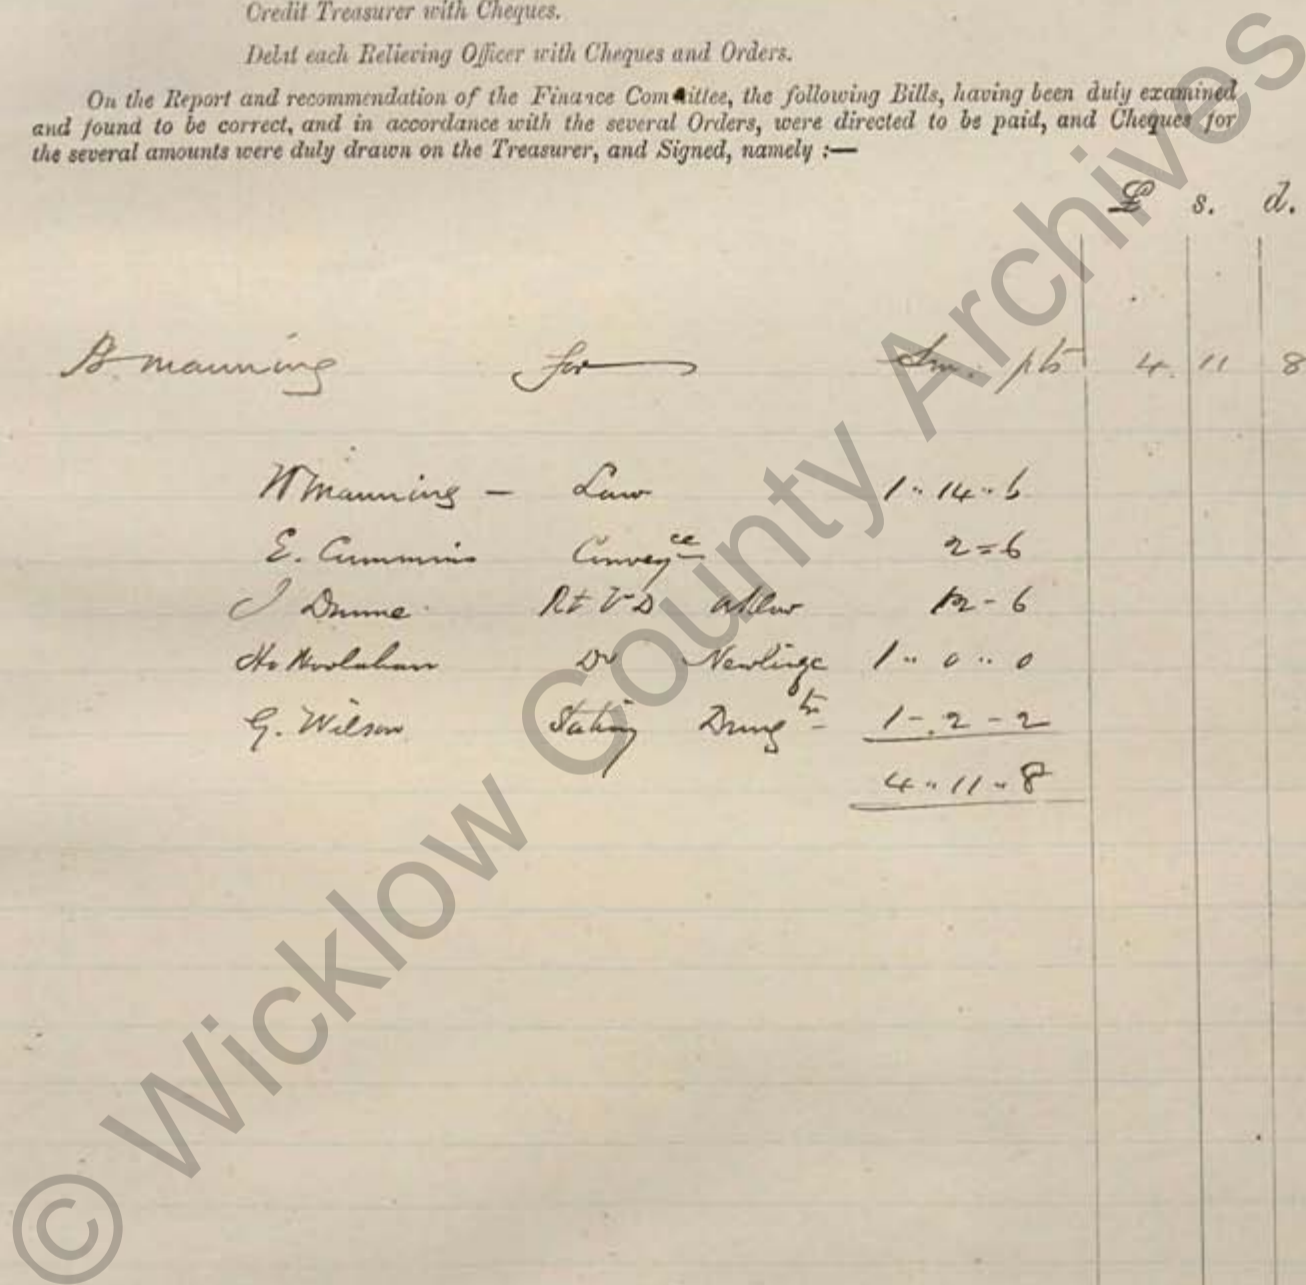 Credit Treasurer with Cheques.
Debit each Relieving Officer with Cheques and Orders.
On the Report and recommendation of the Finance Committee, the following Bills, having been duly examined
and found to be correct, and in accordance with the several Orders, were directed to be paid, and Cheques for
the several amounts were duly drawn on the Treasurer, and Signed, namely :—
£ s. d.
B. Manning for Sm. pts 4. 11 8
W Manning - Law 1 " 14 " 6
E. Cummins Convey ce 2 = 6
J Dunne Rt V-D 12 - 6
Do 1 " 0 " 0
G. Wilson 1 - 2 - 2
4 " 11 " 8
© Wicklow County Archives